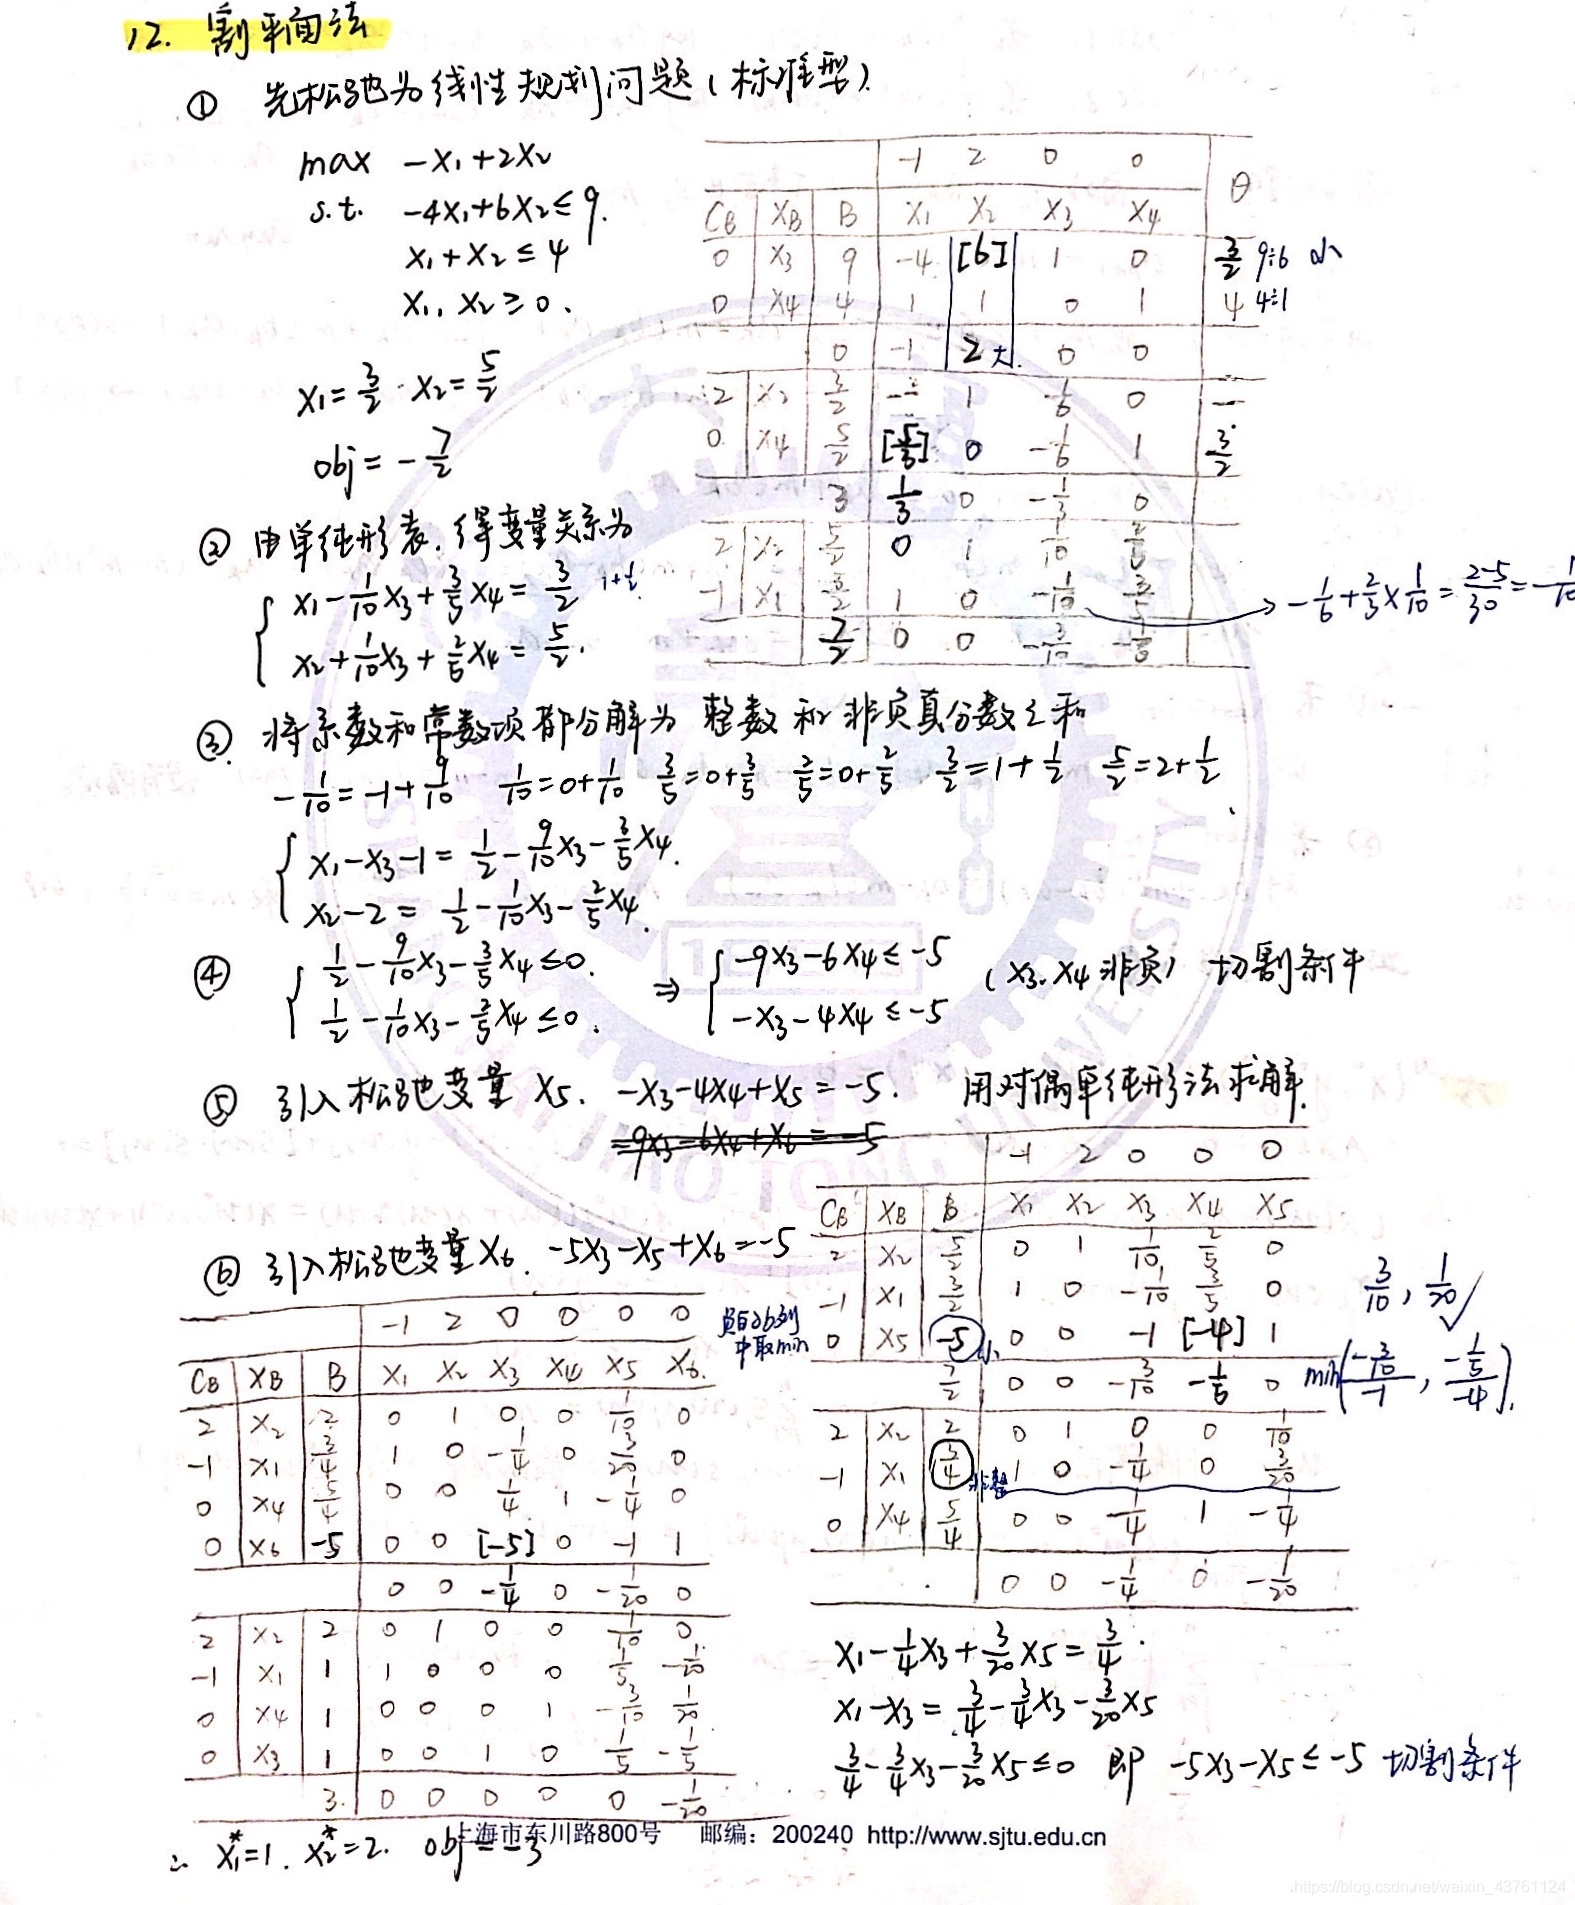 12. 割平面法
① 先松弛为线性规划问题(标准型).
max -x₁+2x₂
s.t. -4x₁+6x₂≤9.
x₁+x₂≤4
x₁, x₂≥0.
x₁=3/2 . x₂=5/2
obj=-7/2
-1 2 0 0 θ
C_B X_B B x₁ x₂ x₃ x₄
0 x₃ 9 -4 [6] 1 0 3/2 9÷6 小
0 x₄ 4 1 1 0 1 4 4÷1
0 -1 2大. 0 0
2 x₂ 3/2 1 1/6 0 —
0 x₄ 5/2 [5/3] 0 -1/6 1 3/2
3 1/3 0 -1/3 0
2 x₂ 5/2 0 1 1/10 2/5
-1 x₁ 3/2 1 0 -1/10 3/5
7/2 0 0 -3/10 -1/5
→ -1/6+2/3×1/10=2-5/30=-1/10
② 由单纯形表, 得变量关系为
x₁-1/10x₃+3/5x₄=3/2 1+1/2
x₂+1/10x₃+2/5x₄=5/2.
③ 将系数和常数项都分解为 整数和非负真分数之和
-1/10=-1+9/10 1/10=0+1/10 3/5=0+3/5 2/5=0+2/5 3/2=1+1/2 5/2=2+1/2.
x₁-x₃-1=1/2-9/10x₃-3/5x₄.
x₂-2=1/2-1/10x₃-2/5x₄.
④ 1/2-9/10x₃-3/5x₄≤0. ⇒ -9x₃-6x₄≤-5 (x₃.x₄非负) 切割条件
1/2-1/10x₃-2/5x₄≤0. -x₃-4x₄≤-5
⑤ 引入松弛变量 x₅. -x₃-4x₄+x₅=-5. 用对偶单纯形法求解.
-9x₃-6x₄+x₆=-5
-1 2 0 0 0
C_B X_B B x₁ x₂ x₃ x₄ x₅
2 x₂ 5/2 0 1 1/10 2/5 0
-1 x₁ 3/2 1 0 -1/10 3/5 0
0 x₅ -5 小 0 0 -1 [-4] 1
7/2 0 0 -3/10 -1/5 0
负的b列
中取min
3/10, 1/20 √
min(-3/10/-1, -1/5/-4).
2 x₂ 2 0 1 0 0 1/10
-1 x₁ 3/4 非整 1 0 -1/4 0 3/20
0 x₄ 5/4 0 0 1/4 1 -1/4
0 0 -1/4 0 -1/20
x₁-1/4x₃+3/20x₅=3/4.
x₁-x₃=3/4-3/4x₃-3/20x₅
3/4-3/4x₃-3/20x₅≤0 即 -5x₃-x₅≤-5 切割条件
⑥ 引入松弛变量x₆. -5x₃-x₅+x₆=-5
-1 2 0 0 0 0
C_B X_B B x₁ x₂ x₃ x₄ x₅ x₆.
2 x₂ 2 0 1 0 0 1/10 0
-1 x₁ 3/4 1 0 -1/4 0 3/20 0
0 x₄ 5/4 0 0 1/4 1 -1/4 0
0 x₆ -5 0 0 [-5] 0 -1 1
0 0 -1/4 0 -1/20 0
2 x₂ 2 0 1 0 0 1/10 0
-1 x₁ 1 1 0 0 0 1/5 -1/20
0 x₄ 1 0 0 0 1 -3/10 1/20
0 x₃ 1 0 0 1 0 1/5 -1/5
3. 0 0 0 0 0 -1/20
∴ x₁*=1. x₂*=2. obj=-3
上海市东川路800号 邮编：200240 http://www.sjtu.edu.cn
SHANGHAI JIAO TONG UNIVERSITY
1896
https://blog.csdn.net/weixin_43761124